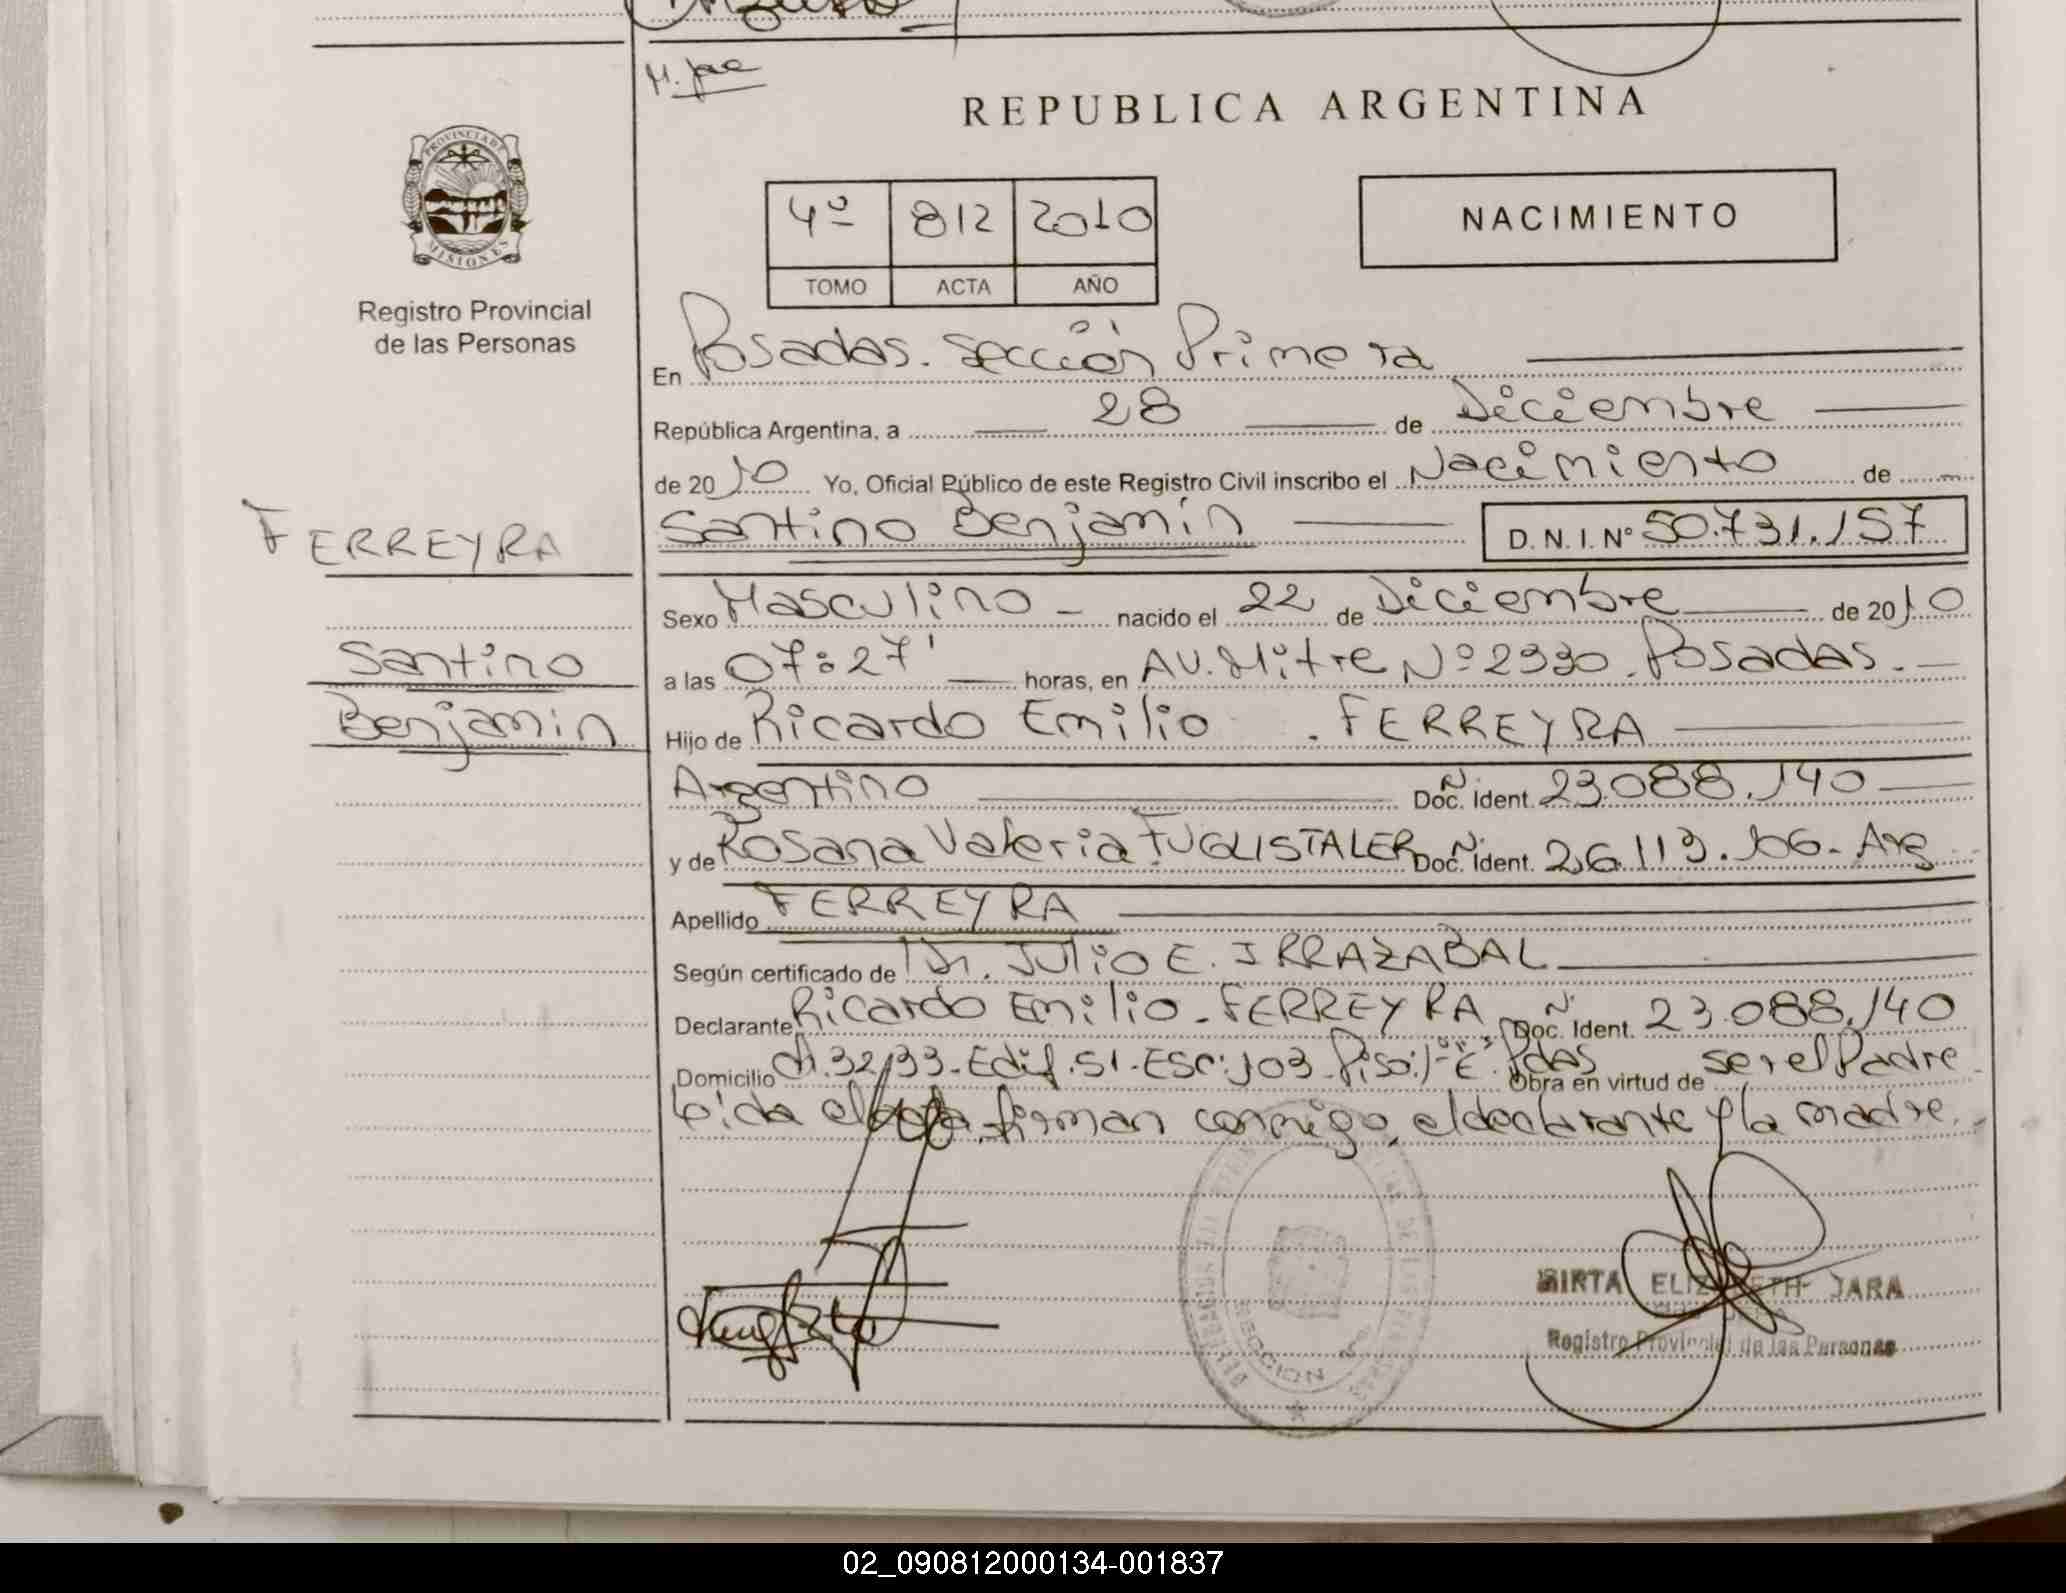 M. Jara
REPUBLICA ARGENTINA
PROVINCIA DE
MISIONES
Registro Provincial
de las Personas
4º 812 2010
TOMO ACTA AÑO
NACIMIENTO
En Posadas. Sección Primera
República Argentina, a 28 de Diciembre
de 2010 Yo, Oficial Público de este Registro Civil inscribo el Nacimiento de
FERREYRA
Santino Benjamín D.N.I. Nº 50.731.157
Sexo Masculino nacido el 22 de Diciembre de 2010
Santino
a las 07:27' horas, en AV. Mitre Nº 2330. Posadas.
Benjamín
Hijo de Ricardo Emilio . FERREYRA
Argentino Nº Doc. Ident. 23.088.140
y de Rosana Valeria FUGLISTALER Nº Doc. Ident. 26.113.106 - Arg
Apellido FERREYRA
Según certificado de Dr. Julio E. IRRAZABAL
Declarante Ricardo Emilio - FERREYRA Nº Doc. Ident. 23.088.140
Domicilio Ch. 32/33 - Edif. 51 - Esc: 103 Piso: 1º "E" Pdas Obra en virtud de ser el Padre
Leída el acta, firman conmigo, el declarante y la madre.
SECCION
MIRTA ELIZABETH JARA
Registro Provincial de las Personas
02_090812000134-001837